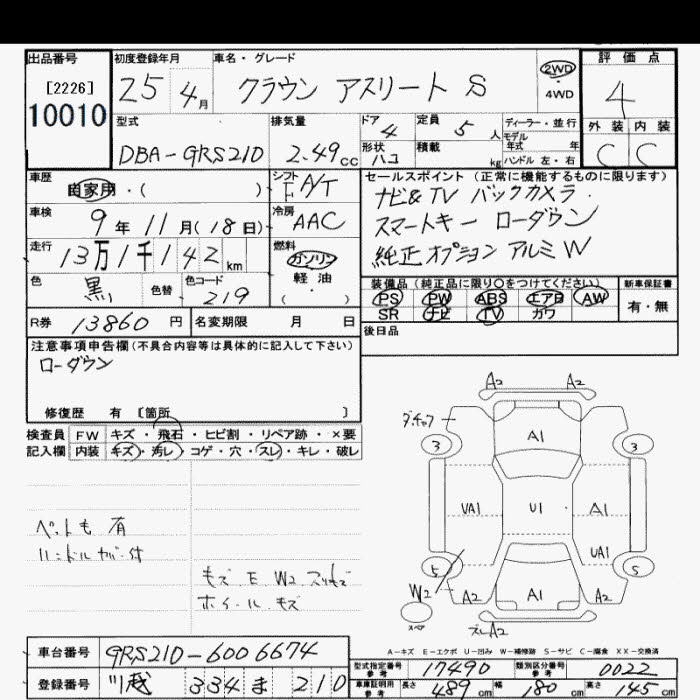 出品番号 初度登録年月 車名・グレード 評価点
[2226] 25 4月 クラウン アスリート S 2WD ・ 4WD 4
10010
型式 排気量 ドア 4 定員 5人 ディーラー・並行 外装 内装
DBA-GRS210 2.49cc 形状 ハコ 積載 kg モデル年式 年 ハンドル 左・右 C C
車歴 自家用・( ) シフト F A/T セールスポイント(正常に機能するものに限ります)
車検 9年11月(18日) 冷房 AAC ナビ&TV バックカメラ.
スマートキー ローダウン
走行 13万1千142km 燃料 ガソリン 軽油 ( ) 純正オプション アルミ W
色 黒 色替 色コード 219 装備品(純正品に限り○をつけてください) 新車保証書
PS PW ABS エアB AW 有・無
SR ナビ TV カワ
R券 13860円 名変期限 月 日 後日品
注意事項申告欄(不具合内容等は具体的に記入して下さい)
ローダウン
修復歴 有 [箇所 ]
検査員 FW キズ・飛石・ヒビ割・リペア跡・×要
記入欄 内装 キズ・汚レ・コゲ・穴・スレ・キレ・破レ
A2 A2
3 A1 3
UA1 U1 A1
UA1
5 5
W2 A2 A1 A2
スペア A2
ハンドルカバー付
キズ E W2 スリキズ
ホイール キズ
A-キズ E-エクボ U-凹み W-補修跡 S-サビ C-腐食 XX-交換済
車台番号 GRS210-6006674 型式指定番号 参考 17490 類別区分番号 参考 0022
登録番号 川越 334 ま 210 車庫証明用 参考 長さ 489cm 幅 180cm 高さ 145cm